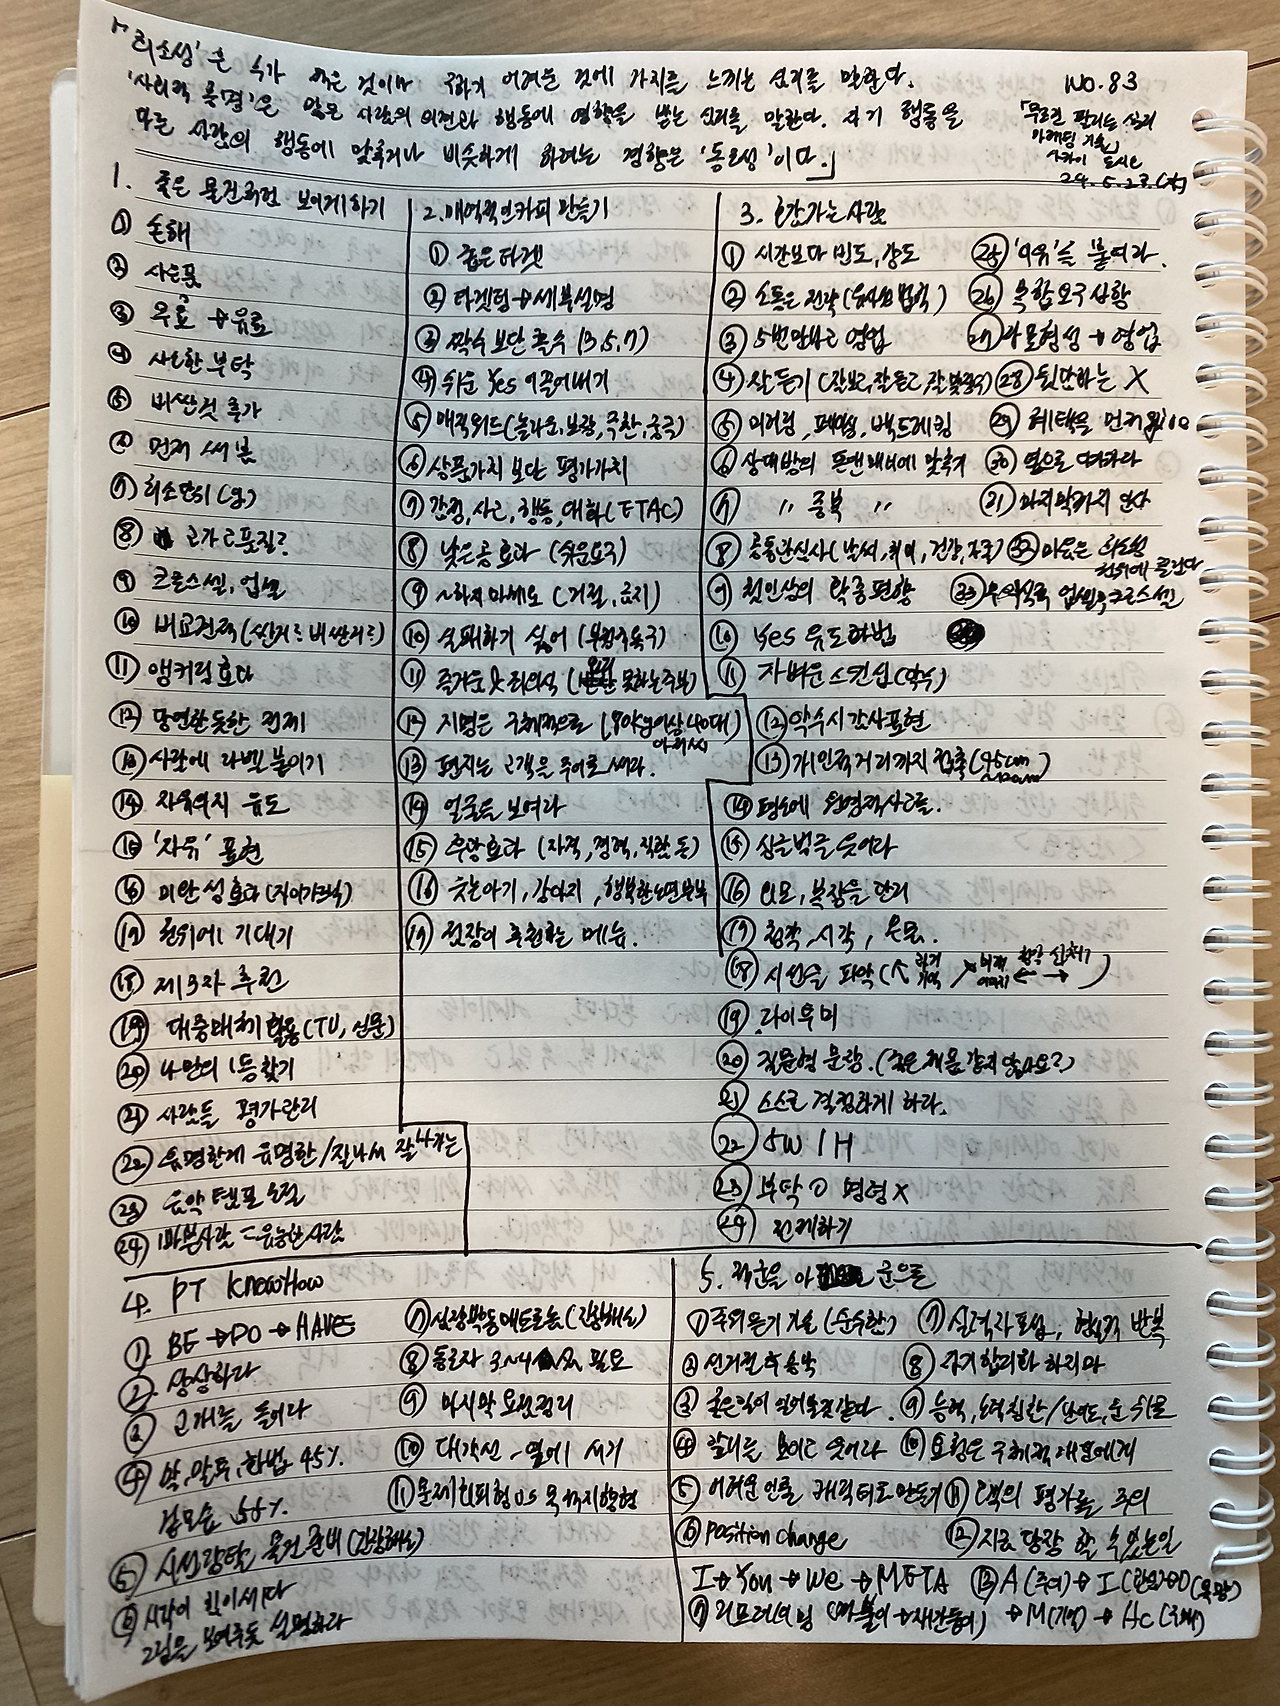 「'희소성'은 수가 적은 것이나 구하기 어려운 것에 가치를 느끼는 심리를 말한다.
'사회적 증명'은 많은 사람의 의견과 행동에 영향을 받는 심리를 말한다. 자기 행동을
다른 사람의 행동에 맞추거나 비슷하게 하려는 경향은 '동조성'이다.」
NO.83
「무조건 팔리는 심리
마케팅 기술」
사카이 도시오
24.5.23.(木)
1. 좋은 물건처럼 보이게하기
① 손해
② 사은품
③ 무료→유료
④ 사소한 부탁
⑤ 비싼것 추가
⑥ 먼저 써 봄
⑦ 최소단위(일)
⑧ 고가=품질?
⑨ 크로스셀, 업셀
⑩ 비교견적(싼거=비싼거=)
⑪ 앵커링효과
⑫ 당연한듯한 전제
⑬ 사람에 라벨 붙이기
⑭ 자유의지 유도
⑮ '자유' 표현
⑯ 미완성효과(자이가르닉)
⑰ 권위에 기대기
⑱ 제3자 추천
⑲ 대중매체 활용(TV, 신문)
⑳ 나만의 1등찾기
㉑ 사람들 평가관리
㉒ 유명한게 유명한/잘나서 잘나가는
㉓ 음악 템포 조절
㉔ 1마분사람 = 유능한사람
2. 매력적인카피 만들기
① 좁은타겟
② 타겟팅→세부설명
③ 짝수 보단 홀수 (3,5,7)
④ 쉬운 Yes 이끌어내기
⑤ 매직워드(놀라운,보람,극찬,궁극)
⑥ 상품가치 보단 평가가치
⑦ 감정,사고,행동,대화(ETAC)
⑧ 낮은공 효과 (쉬운요구)
⑨ ~하지 마세요 (거절, 금지)
⑩ 실패하기 싫어 (부정적욕구)
⑪ 즐거운 X 죄의식 ( 못하는주부)
⑫ 지명은 구체적으로 (아저씨)
⑬ 편지는 고객을 주어로 써라.
⑭ 얼굴을 보여라
⑮ 후광효과 (자격,경력,직함 등)
⑯ 웃는아기, 강아지, 행복한노면부부
⑰ 점장이 추천하는 메뉴.
3. 호감가는사람
① 시간보다 빈도, 강도
② 소통은 전략(유사성법칙)
③ 5번만나고 영업
④ 잘듣기(잘보고,잘듣고,잘맞장구)
⑤ 미러링, 페이싱, 백트레킹
⑥ 상대방의 톤앤매너에 맞추기
⑦ 〃 중복 〃
⑧ 공통관심사(날씨,취미,건강,가족)
⑨ 첫인상의 확증편향
⑩ Yes 유도화법
⑪ 가벼운 스킨십(악수)
⑫ 악수시 감사표현
⑬ 개인적거리까지 접촉(45cm
⑭ 평소에 긍정적사고를.
⑮ 싱글벙글 웃어라
⑯ 외모, 복장을 관리
⑰ 청각, 시각, 온몸.
⑱ 시선을 파악(
⑲ 라이무미
⑳ 질문형 문장.
㉑ 스스로 결정하게 하라.
㉒ 5W 1H
㉓ 부탁 O 명령 X
㉔ 전제하기
㉕ '이유'를 붙여라.
㉖ 복합요구상황
㉗ 라포형성→영업
㉘ 뒷담하는 X
㉙ 혜택을 먼저
㉚ 옆으로 다가가라
㉛ 마지막까지 인사
㉜ 마음은 희소성
권위에 끌린다
㉝ 업셀링,크로스셀
4. PT KnowHow
① BE→DO→HAVE
② 상상하라
③ 고개를 들어라
④ 말,말투,화법 45%.
겉모습 55%.
⑤ 시선강탈 물건준비(긴장해소)
⑥ 시각이 힘이세다
그림을 보여주듯 설명하라
⑦ 심장박동 메트로놈(긴장해소)
⑧ 동조자 3~4人 필요
⑨ 마지막 요점정리
⑩ 대각선-옆에 서기
⑪ 문제회피형 vs 목적지향형
5. 적군을 아군으로
① 주의돌리기 기술(순수한)
② 선거절 후승낙
③ 좋은일이 있어날것같다.
④ 앞니를 보이고 웃어라
⑤ 어려운 인물 캐릭터로만들기
⑥ Position Change
I→You→We→META
⑦ 리프레이밍
⑦ 실적자포섭, 형식적 반복
⑧ 자기합리화 하지마
⑨ 능력,노력칭찬/난이도,운 위로
⑩ 요청은 구체적 대상에게
⑪ 고객의 평가를 주의
⑫ 지금 당장 할 수 있는일
⑬ A(주의)→I(관심)→D(욕망)
→M(기억)→Ac(구매)